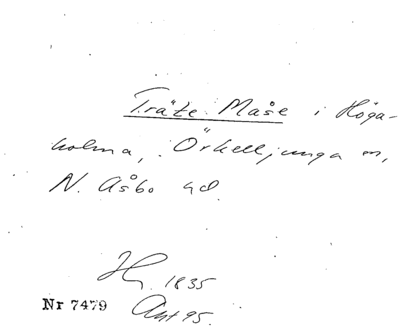 Träte-Måse i Höga-
holma, Örkelljunga sn,
N. Åsbo hd.
1835
Nr 7479
Akt 95.